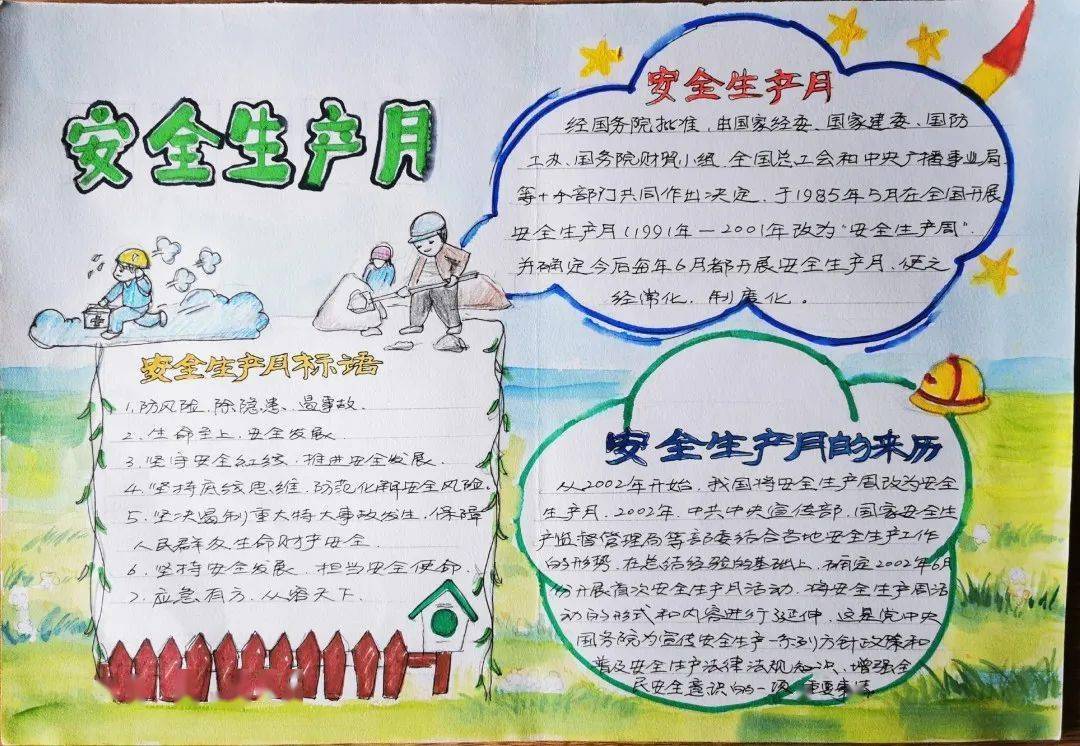 安全生产月
安全生产月标语
1.防风险、除隐患、遏事故.
2.生命至上、安全发展.
3.坚守安全红线、推进安全发展.
4.坚持底线思维、防范化解安全风险.
5.坚决遏制重大特大事故发生,保障
人民群众生命财产安全.
6.坚持安全发展、担当安全使命.
7.应急有方、从容天下.
安全生产月
经国务院批准,由国家经委、国家建委、国防
工办、国务院财贸小组、全国总工会和中央广播事业局
等十个部门共同作出决定,于1985年5月在全国开展
安全生产月(1991年—2001年改为"安全生产周".
并确定今后每年6月都开展安全生产月,使之
经常化,制度化。
安全生产月的来历
从2002年开始,我国将安全生产周改为安全
生产月.2002年,中共中央宣传部、国家安全生
产监督管理局等部委结合当地安全生产工作
的形势,在总结经验的基础上,确定2002年6月
份开展首次安全生产月活动,将安全生产周活
动的形式和内容进行延伸,这是党中央
国务院为宣传安全生产一系列方针政策和
普及安全生产法律法规知识、增强全
民安全意识的一项重要